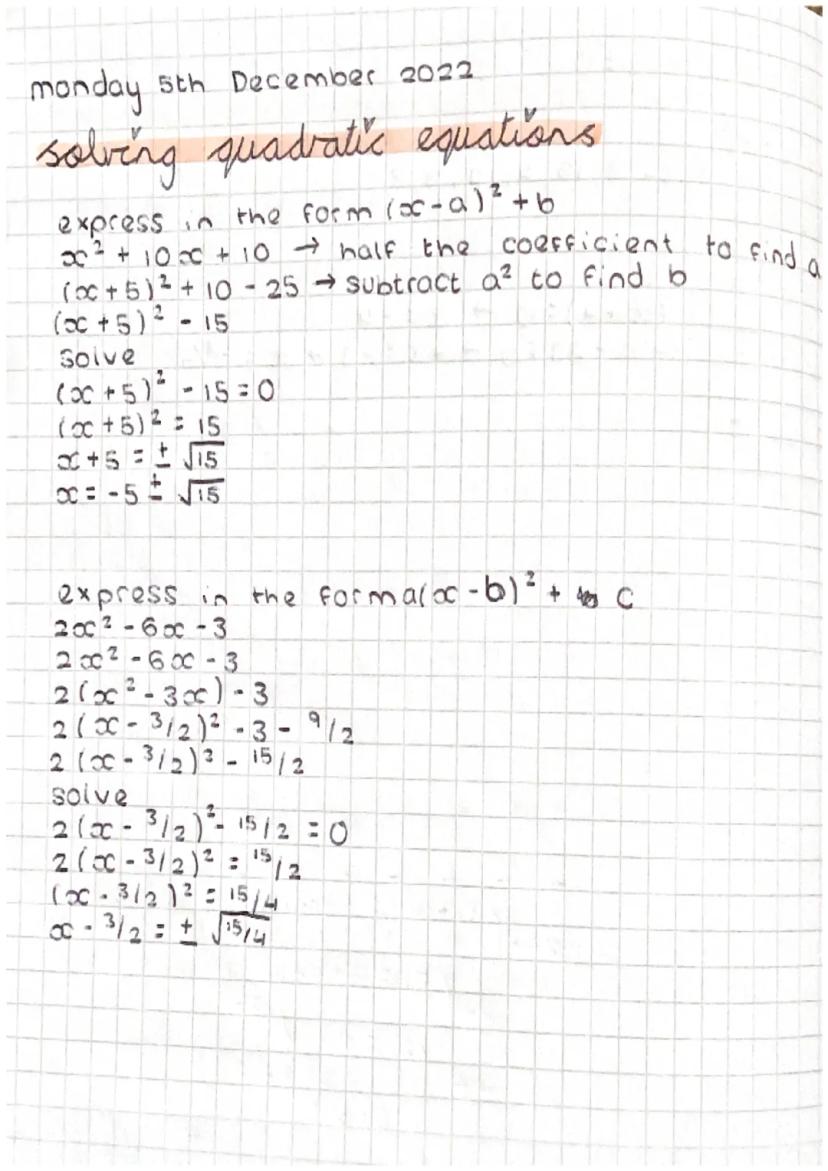 monday 5th December 2022
solving quadratic equations
express in the form (x-a)² + b
x² + 10x + 10 → half the coefficient to find a
(x+5)² + 10 - 25 → subtract a² to find b
(x+5)² - 15
solve
(x+5)² - 15 = 0
(x+5)² = 15
x+5 = ± √15
x = -5 ± √15
express in the form a(x-b)² + c
2x² - 6x - 3
2x² - 6x - 3
2(x² - 3x) - 3
2(x - 3/2)² - 3 - 9/2
2(x - 3/2)² - 15/2
solve
2(x - 3/2)² - 15/2 = 0
2(x - 3/2)² = 15/2
(x - 3/2)² = 15/4
x - 3/2 = ± √15/4